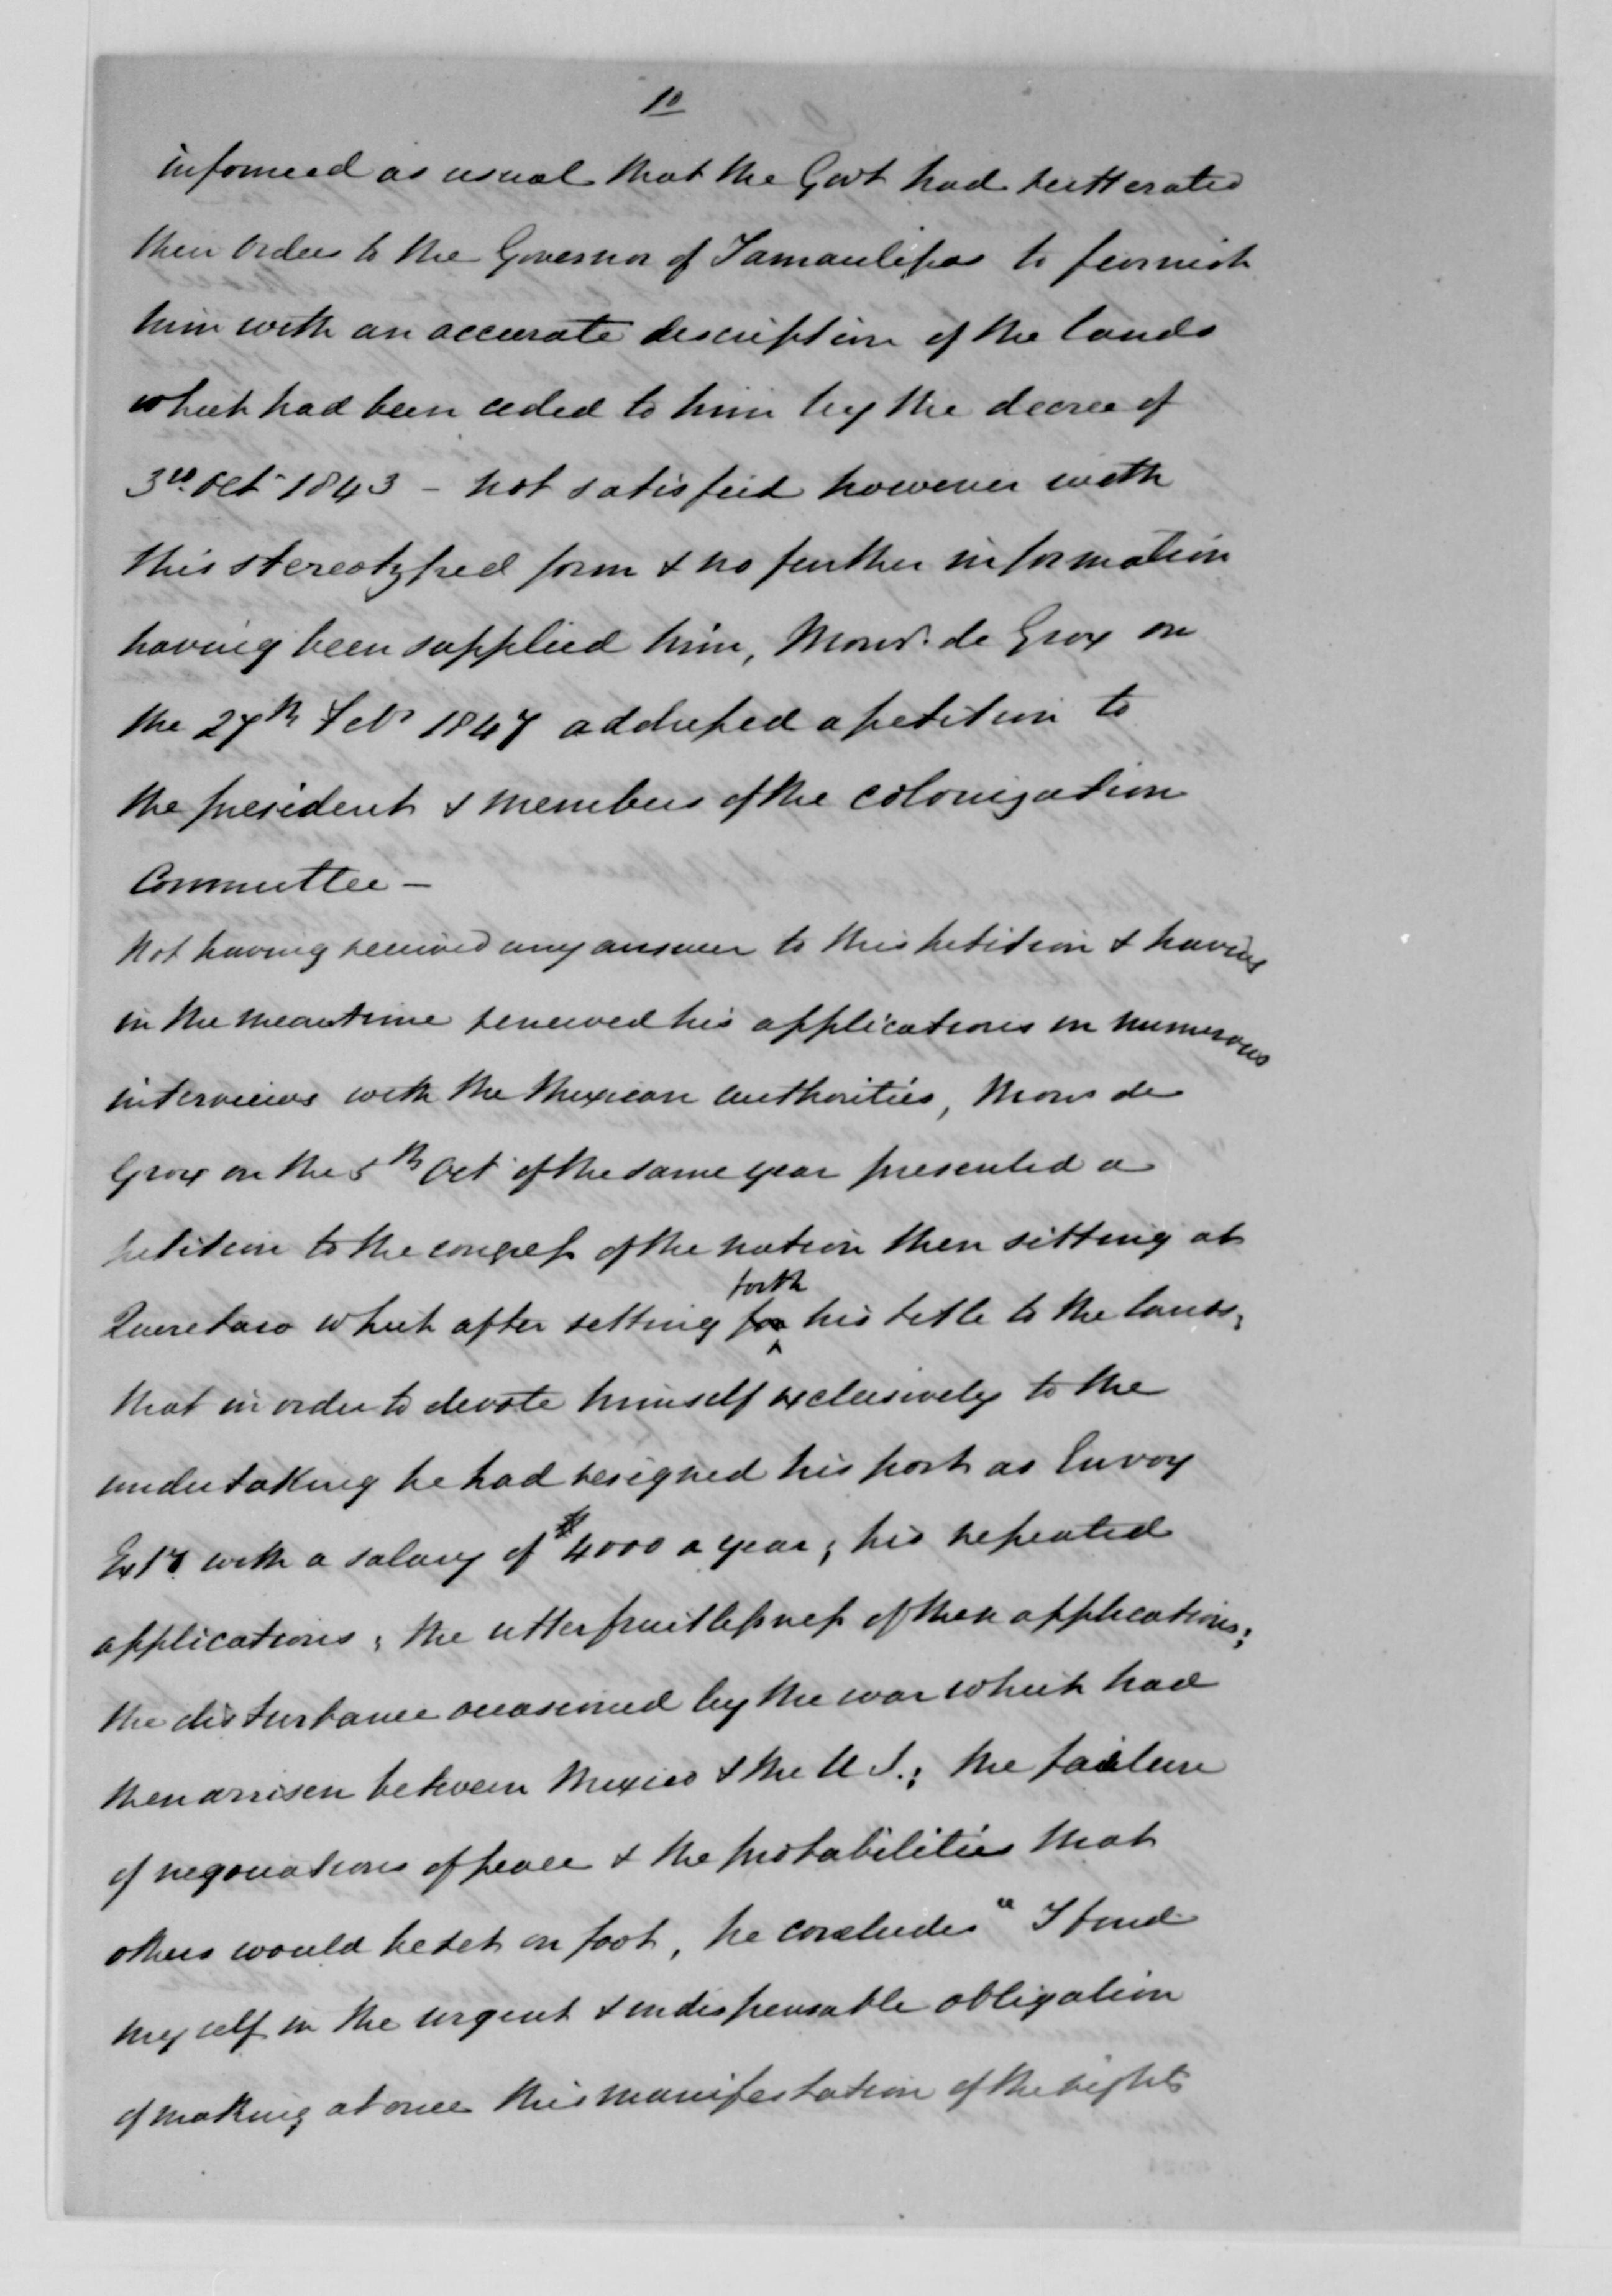 10
informed as usual that the Govt had reitterated
their orders to the Governor of Tamaulipas to furnish
him with an accurate description of the lands
which had been ceded to him by the decree of
3rd Oct 1843 – not satisfied however with
this stereotyped form & no further information
having been supplied him, Monsr. de Grox on
the 27th Feby 1847 addressed a petition to
the president & members of the colonization
Committee –
Not having received any answer to this petition & having
in the meantime renewed his applications in numerous
interviews with the Mexican authorities, Mons de
Grox on the 5th Oct of the same year presented a
petition to the congress of the nation then sitting at
forth
Queretaro which after setting for his title to the lands;
that in order to devote himself exclusively to the
undertaking he had resigned his post as Envoy
Exty with a salary of $4000 a year; his repeated
applications; the utter fruitlessness of their applications;
the disturbance occasioned by the war which had
then arrisen between Mexico & the U S.; the failure
of negociations of peace & the probabilities that
others would be set on foot, he concludes "I find
myself in the urgent & indispensable obligation
of making at once this manifestation of the rights